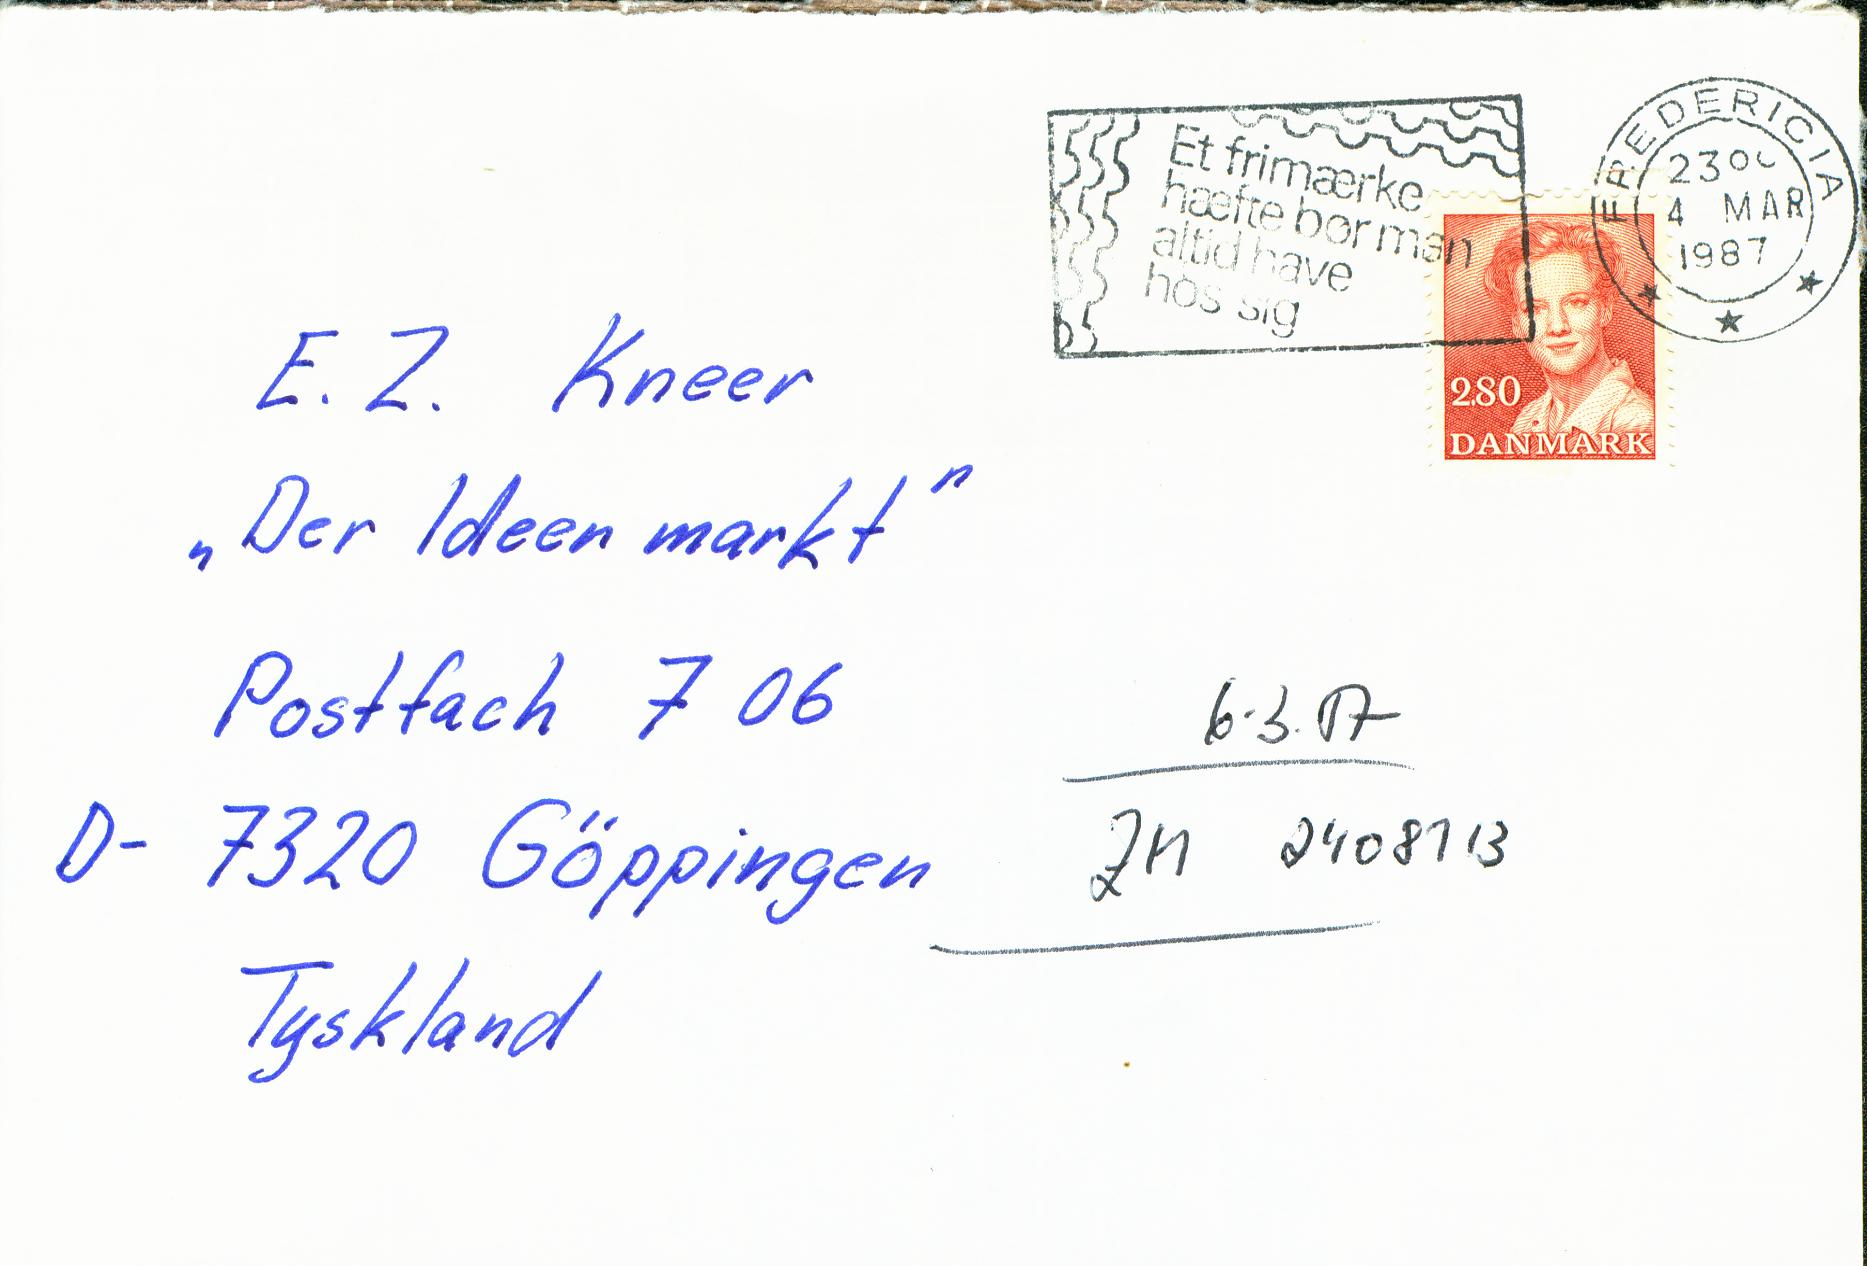 Et frimærke
hæfte bør man
altid have
hos sig
FREDERICIA
2300
4 MAR
1987
2.80
DANMARK
E. Z. Kneer
„Der Ideenmarkt"
Postfach 7 06
D- 7320 Göppingen
Tyskland
6.3.87
2408713